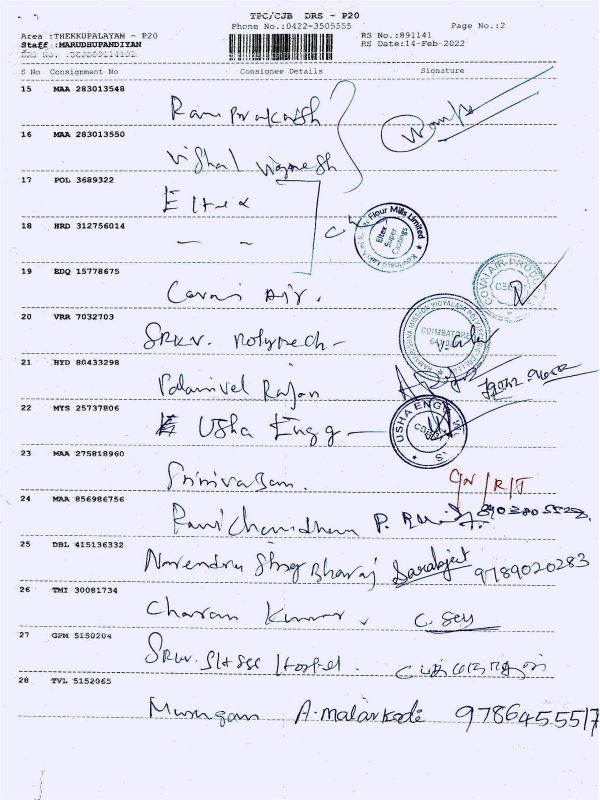 TPC/CJB DRS - P20
Phone No.:0422-3505555 Page No.:2
Area :THEKKUPALAYAM - P20 RS No.:891141
Staff :MARUDHUPANDIYAN RS Date:14-Feb-2022
S No Consignment No Consignee Details Signature
15 MAA 283013548
Ram Prakash
16 MAA 283013550
Vishal Vignesh
17 POL 3689322
Eltex
18 HRD 312756014
— ~
Flour Mills Limited
Eltex Super Castings
19 EDQ 15778675
Covai Air.
COVAI AIR PRO
20 VRR 7032703
SRKV. Polytech -
RAMAKRISHNA MISSION VIDYALAYA POLYTECHNIC
COIMBATORE
21 HYD 80433298
Palanivel Rajan
22 MYS 25737806
Usha Engg -
USHA ENGG
23 MAA 275818960
Srinivasan.
24 MAA 856986756
Ramchandran P.
25 DBL 415136332
Narendra Sing Bharaj Sarabjeet 9789020283
26 TMI 30081734
Charan Kumar.
27 GPM 5150204
SRKV. Hostel.
28 TVL 5152065
Murugan A. Malarkodi 9786455517